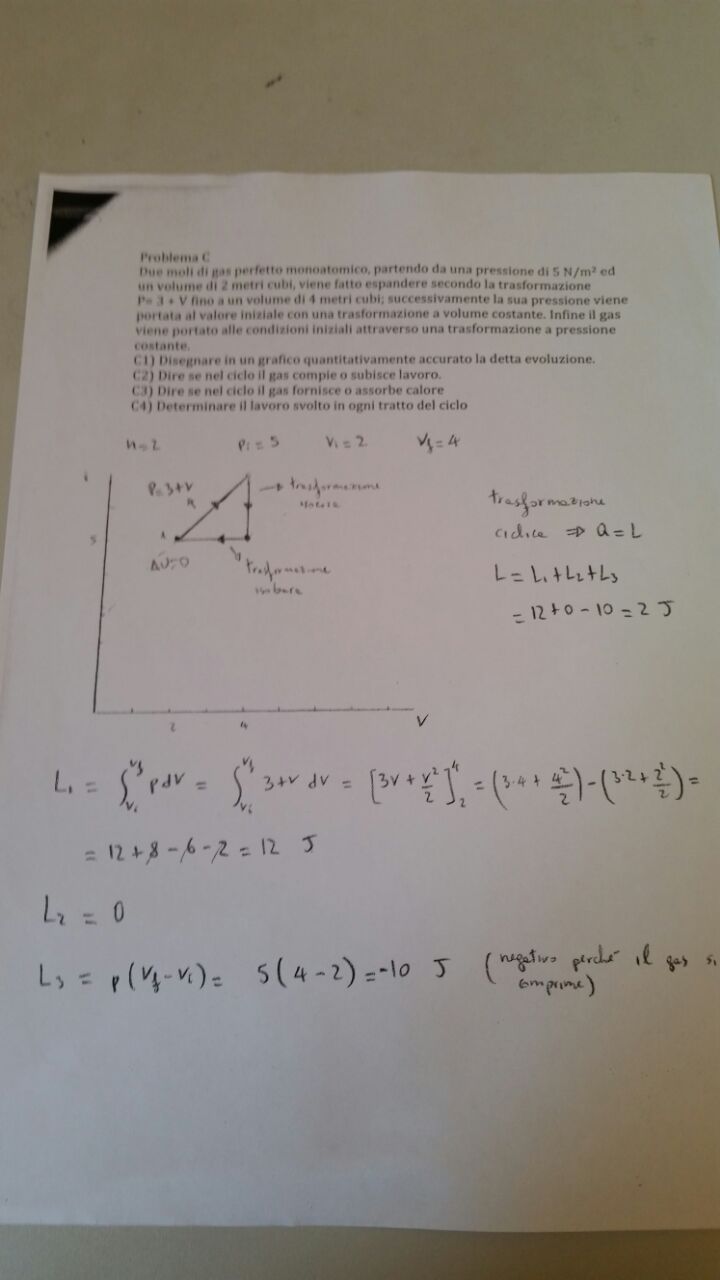 Problema C
Due moli di gas perfetto monoatomico, partendo da una pressione di 5 N/m² ed
un volume di 2 metri cubi, viene fatto espandere secondo la trasformazione
P= 3 + V fino a un volume di 4 metri cubi; successivamente la sua pressione viene
portata al valore iniziale con una trasformazione a volume costante. Infine il gas
viene portato alle condizioni iniziali attraverso una trasformazione a pressione
costante.
C1) Disegnare in un grafico quantitativamente accurato la detta evoluzione.
C2) Dire se nel ciclo il gas compie o subisce lavoro.
C3) Dire se nel ciclo il gas fornisce o assorbe calore
C4) Determinare il lavoro svolto in ogni tratto del ciclo
n=2 Pi = 5 Vi = 2 Vf = 4
P=3+V
trasformazione
isocora
5
ΔU=0
trasformazione
isobara
2 4 V
trasformazione
ciclica ⇒ Q = L
L = L1 + L2 + L3
= 12 + 0 - 10 = 2 J
L1 = ∫Vi^Vf p dV = ∫Vi^Vf 3+V dV = [3V + V²/2]₂⁴ = (3·4 + 4²/2) - (3·2 + 2²/2) =
= 12 + 8 - 6 - 2 = 12 J
L2 = 0
L3 = p(Vf - Vi) = 5(4-2) = -10 J (negativo perché il gas si
comprime)